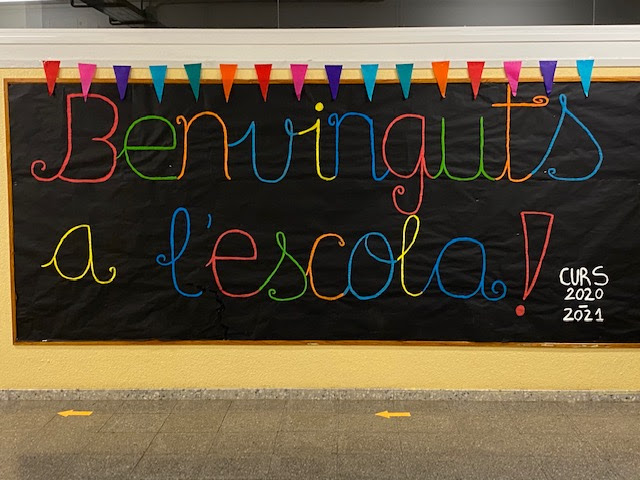 Benvinguts
a l'escola!
CURS
2020
-
2021